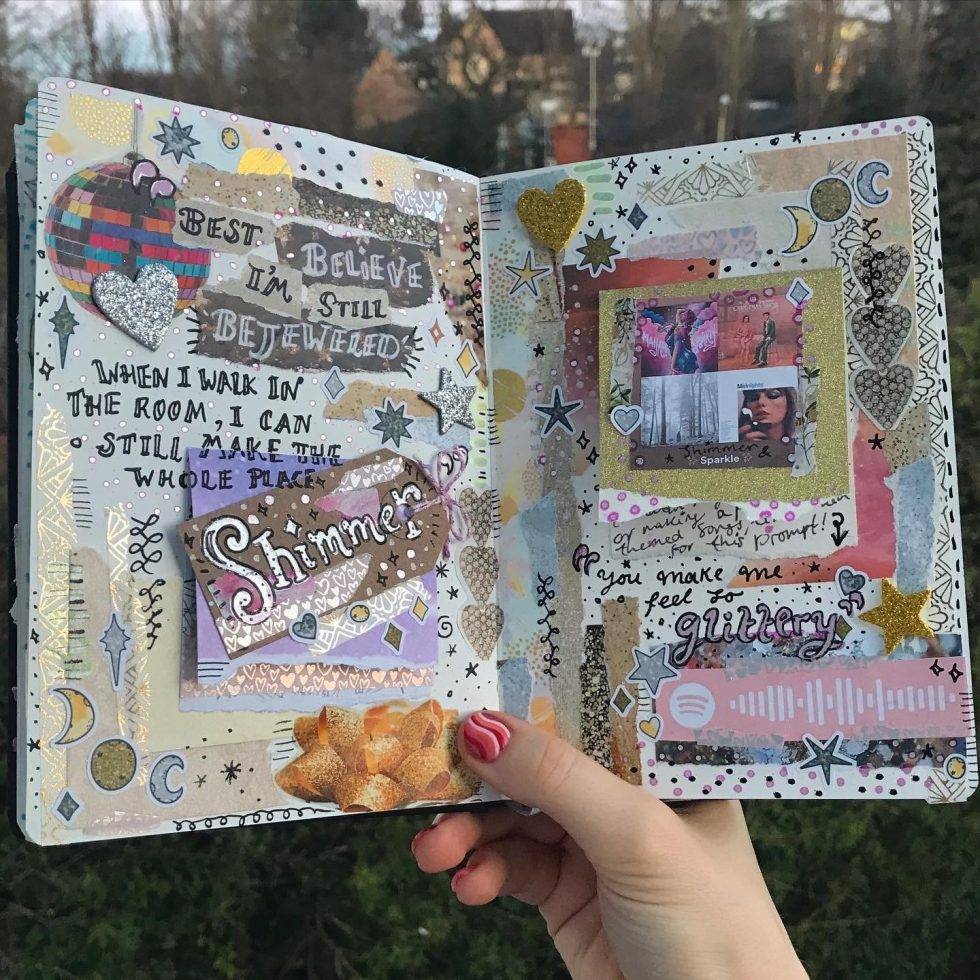 BEST
BELIEVE
I'M STILL
BEJEWELED
WHEN I WALK IN
THE ROOM, I CAN
STILL MAKE THE
WHOLE PLACE
Shimmer
Midnights
Shimmer &
Sparkle
or making a
themed songs
for this prompt!
"you make me
feel so
glittery"